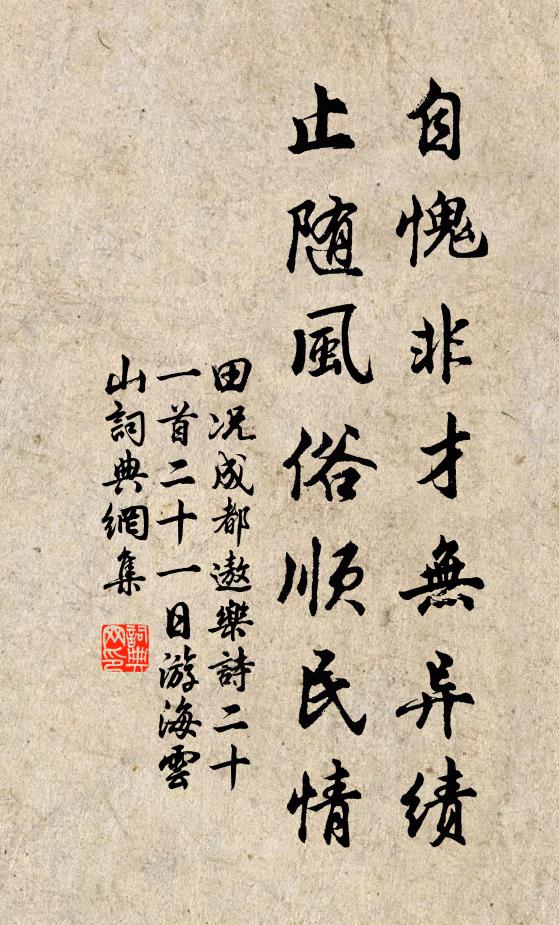 自愧非才無异绩
止随風俗順民情
田况成都遨樂詩二十
一首二十一日游海雲
山詞典網集
詞典
网印